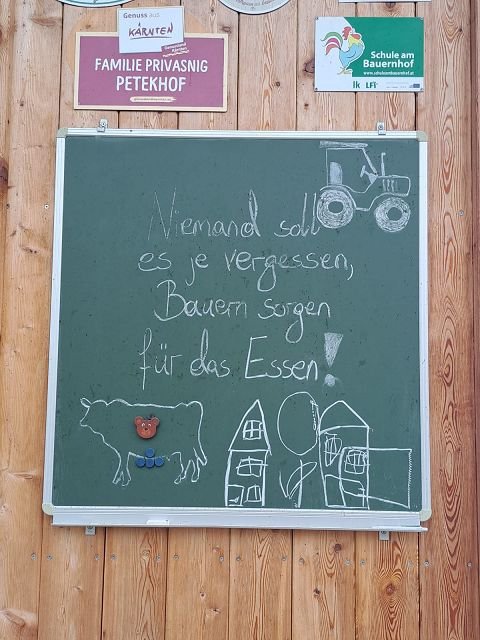 Genuss aus
KÄRNTEN
FAMILIE PRIVASNIG
PETEKHOF
Schule am
Bauernhof
www.schuleambauernhof.at
lk LFI
Niemand soll
es je vergessen,
Bauern sorgen
für das Essen!